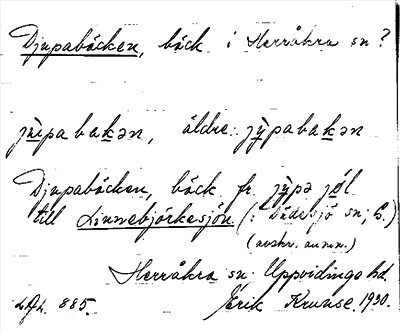 Djupabäcken, bäck i Herråkra sn?
jùpabakən, äldre: jỳpabakən
Djupabäcken, bäck fr. jỳpə jøl
till Linnebjörkesjön (: Dädesjö sn;
(avskr. anm.)
Herråkra sn. Uppvidinge hd.
885. Erik Kruuse 1930.